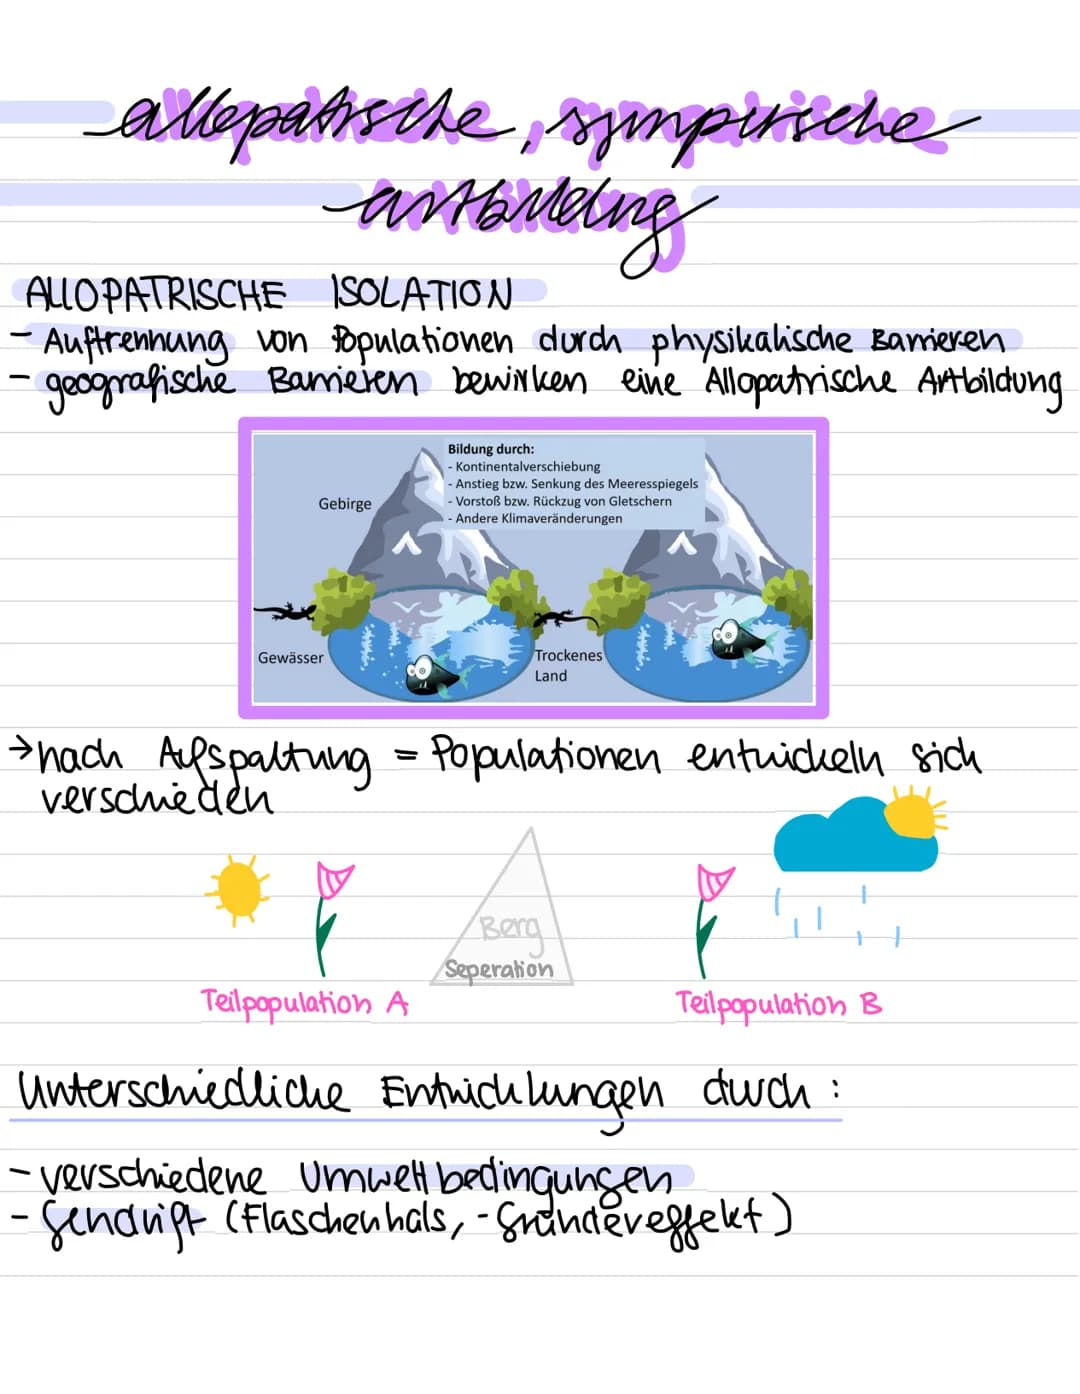 allopatrische, sympatrische
artbildung
ALLOPATRISCHE ISOLATION
- Auftrennung von Populationen durch physikalische Barrieren
- geografische Barrieren bewirken eine Allopatrische Artbildung
Bildung durch:
- Kontinentalverschiebung
- Anstieg bzw. Senkung des Meeresspiegels
- Vorstoß bzw. Rückzug von Gletschern
- Andere Klimaveränderungen
Gebirge
Gewässer
Trockenes
Land
→ nach Aufspaltung = Populationen entwickeln sich
verschieden
Berg
Seperation
Teilpopulation A
Teilpopulation B
Unterschiedliche Entwicklungen durch:
- verschiedene Umweltbedingungen
- Gendrift (Flaschenhals, -Gründereffekt)